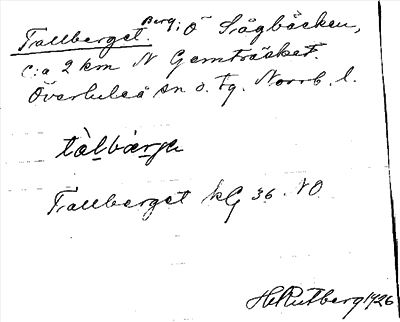 Tallberget. Berg; Ö Sågbäcken,
c:a 2 km N Gemträsket.
Överluleå sn o. tg. Norrb. l.
tàlbærje
Tallberget kG 36. NO
H. Rutberg 1926